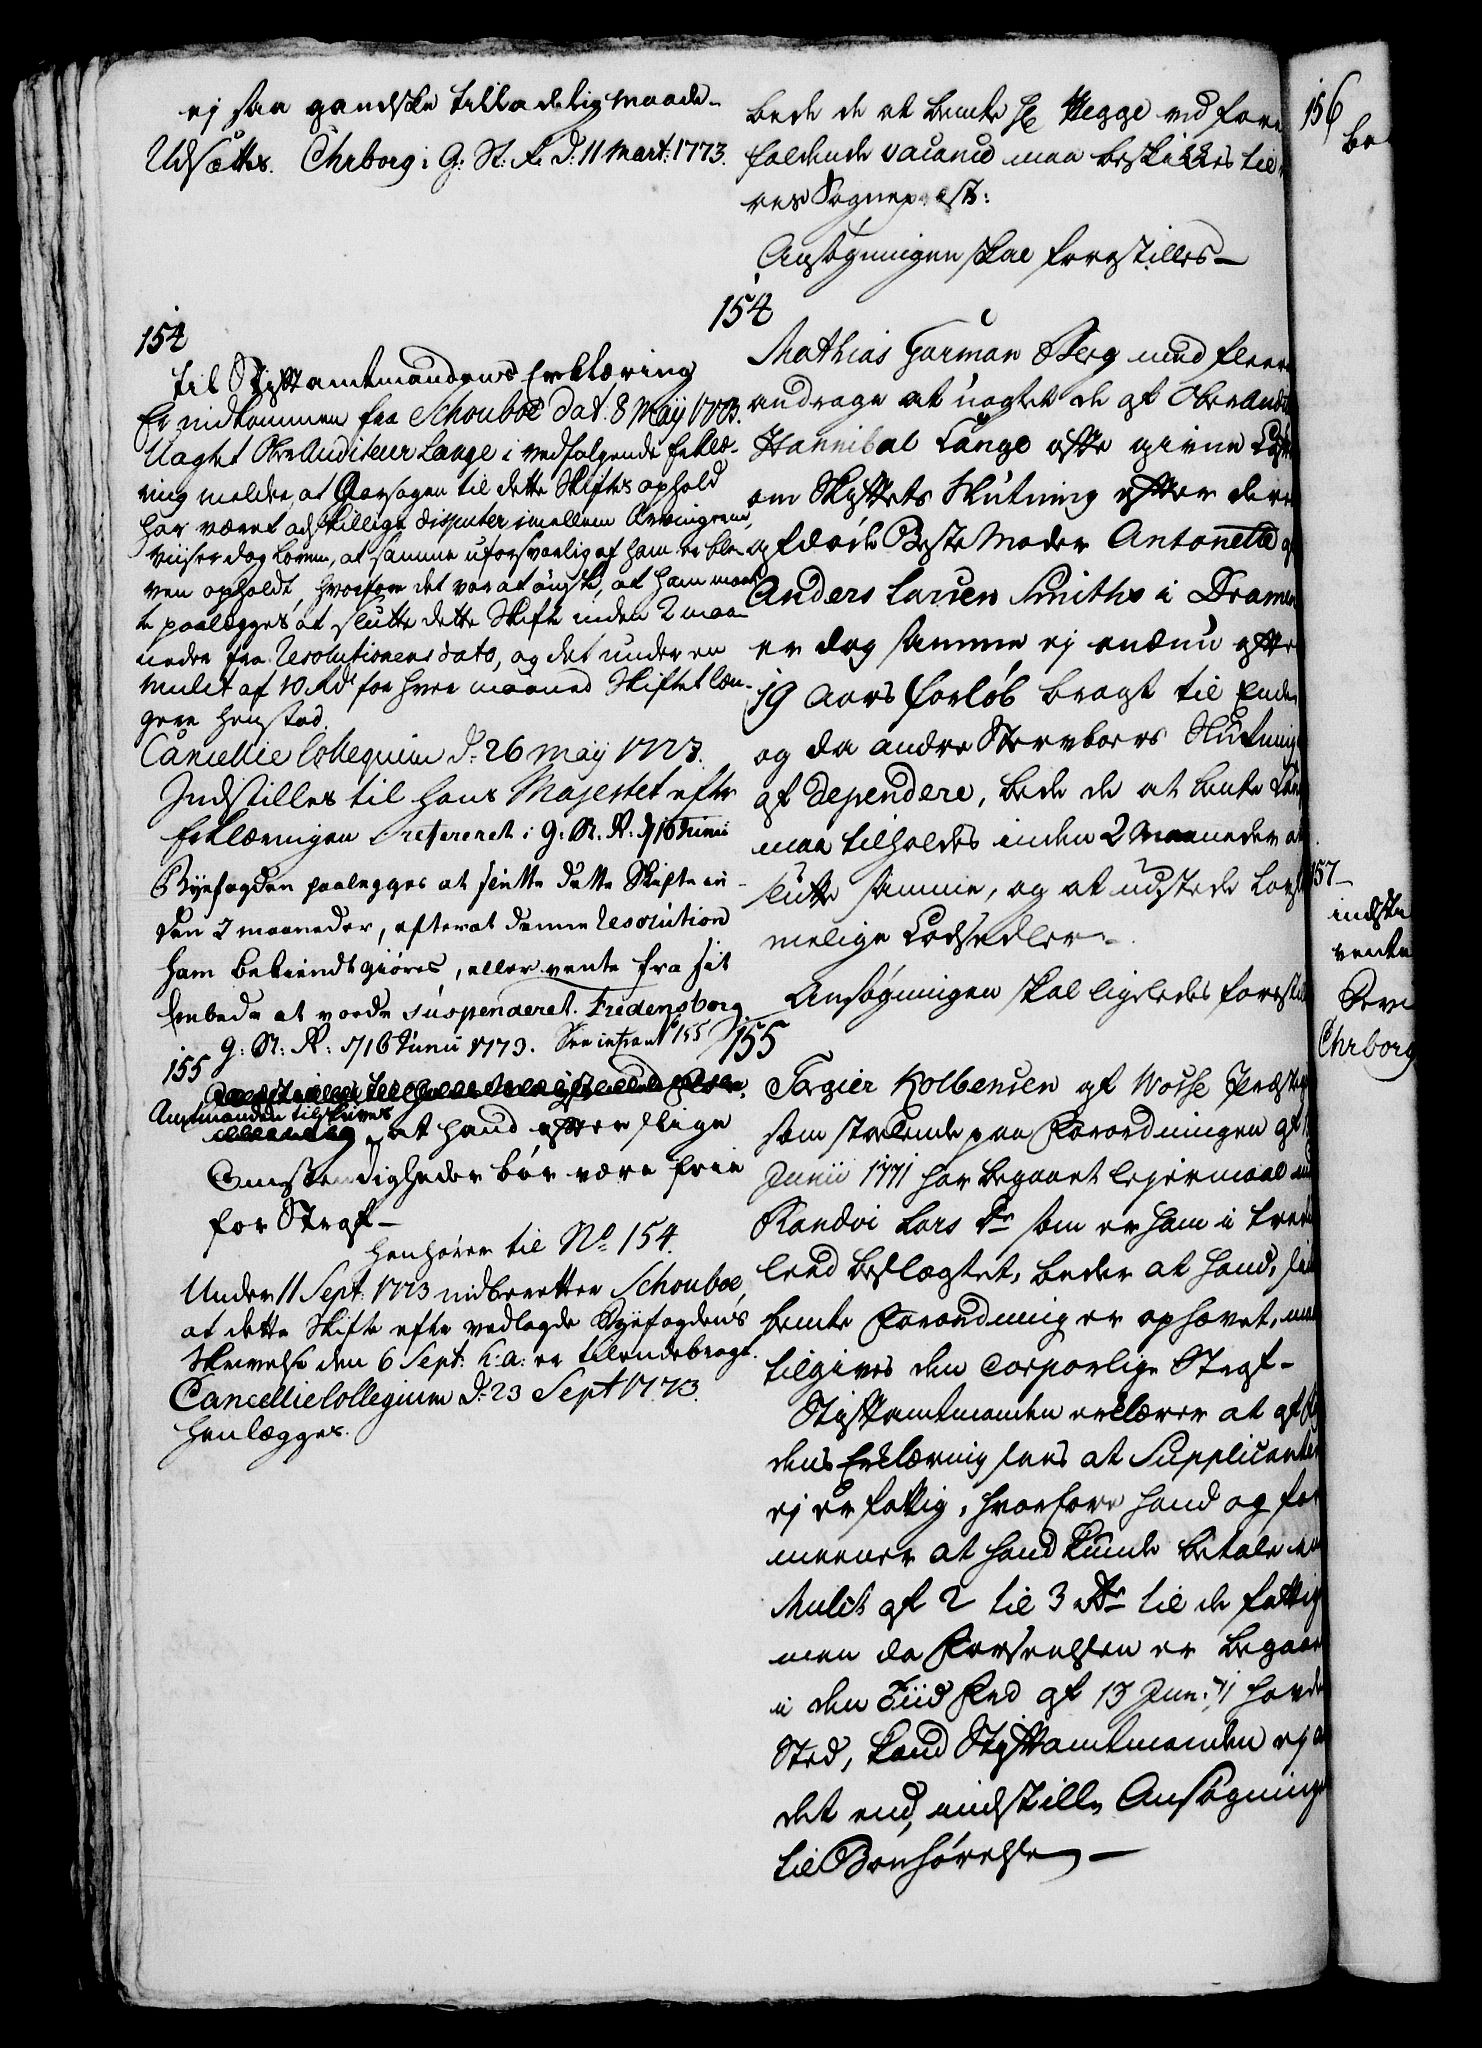 ej saa gandske tilladelig maade
Udsættes. Chrborg i G: St: R. d: 11 Mart: 1773.
154
til Stiftamtmandens Erklæring
Er indkommen fra Schouboe dat. 8 Maÿ 1773.
Uagtet OberAuditeur Lange i vedfølgende Erklæ-
ring melder at Aarsagen til dette Skiftes ophold
har været adskillige disputer imellem Arvingerne,
viiser dog Loven, at samme uforsvarlig af ham er ble-
ven opholdt, hvorfore det var at ønske, at ham maat-
te paalegges at slutte dette Skifte inden 2 maa-
neder fra Resolutionens dato, og det under en
Mulct af 10 Rd. for hver maaned Skiftet læn-
gere henstod.
Cancellie Collegium d: 26 Maÿ 1773.
Indstilles til hans Majestet efter
Erklæringen Refereret i G: St: R. d 16 Junii
Byefogden paalegges at slutte dette Skifte in-
den 2 maaneder, efterat denne Resolution
ham bekiendtgiøres, eller vente fra sit
Embede at vorde suspenderet. Fredensborg
G: St: R: d 16 Junii 1773. See infra No 155
155
Amtmanden tilskrives
at hand efter slige
Omstendigheder bør være frie
for Straf-
henhører til No 154.
Under 11 Sept: 1773 indberetter Schouboe,
at dette Skifte efter vedlagde Byefogdens
Skrivelse den 6 Sept: h: a: er tilendebragt.
Cancellie Collegium d: 23 Sept 1773.
henlægges.
bede de at bemte Hr Hegge ved fore
faldende vacance maa beskikkes til
res Sognepræst:
Ansøgningen skal forestilles-
154
Mathias Garman Berg med fleere
andrage at uagtet de af OberAudi
Hannibal Lange ofte givne Løfte
om Skiftets Slutning efter dere
afdøde Beste Moder Antonette
Anders Larsen Smiths i Dramen
er dog samme ej endnu efter
19 Aars forløb bragt til Ende
og da andre Sterboers Slutning
af dependere, bede de at bemte Lan
maa tilholdes inden 2 Maaneder at
slutte samme, og at udstede Lovf
melige Lodsedler-
Ansøgningen skal ligeledes foresti
155
Torgier Kolbensen af Wosse
som stoelende paa Forordningen af 13
Junii 1771 har begaaet lejermaal med
Randvi Lars Dr som er ham i tredie
leed beslægtet, beder at hand, si
bemte Forordning er ophævet, maa
tilgives den Corporlige Straf-
Stiftamtmanden erklærer at af
dens Erklæring sees at Supplicanten
ej er fattig, hvorfore hand og for
meener at hand kunde betale en
Mulct af 2 til 3 Rdr til de fattige
men da Forseelsen er begaae
i den Tiid Frd af 13 Jun: 71 havde
Sted, kand Stiftamtmanden ej a
det end, indstille Ansøgninge
til Bønhørelse-
156
be
157
indstil
vente
Chrborg